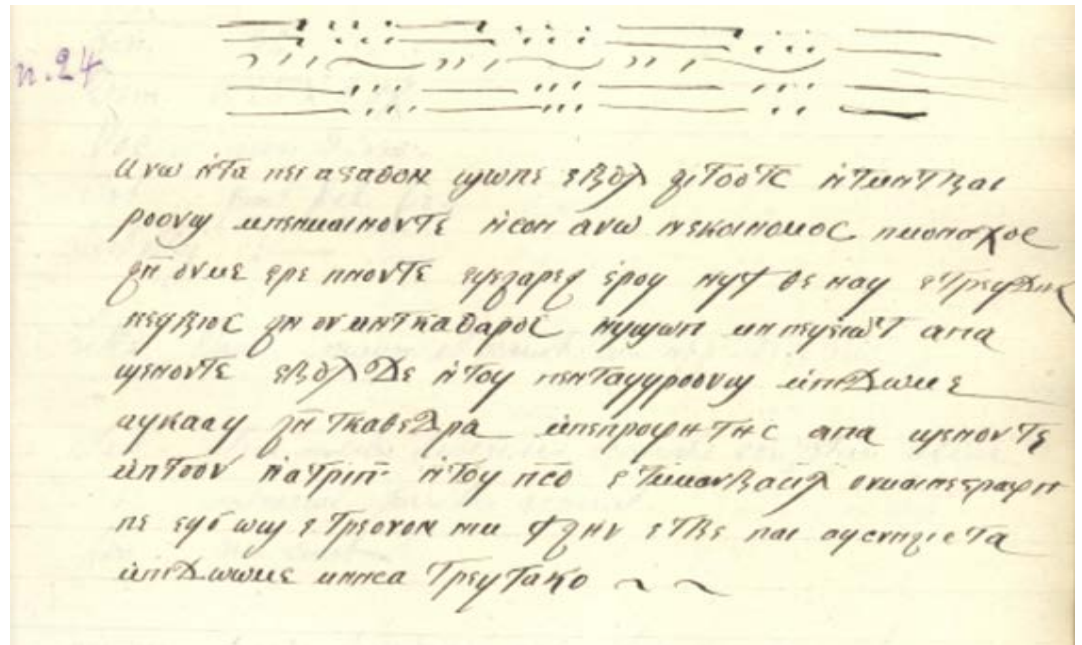 n. 24
ⲁⲩⲱ ⲛ̀ⲧⲁ ⲡⲉⲓ ⲁⲅⲁⲑⲟⲛ ϣⲱⲡⲉ ⲉⲃⲟⲗ ϩⲓⲧⲟⲟⲧⲥ ⲛ̀ⲧⲙⲛⲧϥⲁⲓ
ⲣⲟⲟⲩϣ ⲙⲡⲉⲛⲙⲁⲓⲛⲟⲩⲧⲉ ⲛ̀ⲥⲟⲛ ⲁⲩⲱ ⲛⲉⲕⲟⲓⲛⲟⲙⲟⲥ ⲡⲙⲟⲛⲁⲭⲟⲥ
ϩⲛ̄ ⲟⲩⲙⲉ ⲉⲣⲉ ⲡⲛⲟⲩⲧⲉ ⲉϥⲉϩⲁⲣⲉϩ ⲉⲣⲟϥ ⲛϥϯ ⲑⲉ ⲛⲁϥ
ⲡⲉϥⲃⲓⲟⲥ ϩⲛ ⲟⲩⲙⲛⲧⲕⲁⲑⲁⲣⲟⲥ ⲛϥϣⲱⲡ ⲙⲛ ⲡⲉϥⲉⲓⲱⲧ ⲁⲡⲁ
ϣⲉⲛⲟⲩⲧⲉ ⲉⲃⲟⲗ ϫⲉ ⲛ̀ⲧⲟϥ ⲡⲉⲛⲧⲁϥϥⲣⲟⲟⲩϣ ⲙ̀ⲡⲓϫⲱⲙⲉ
ⲁϥⲕⲁⲁϥ ϩⲛ̄ ⲧⲕⲁⲑⲉⲇⲣⲁ ⲙⲡⲉⲡⲣⲟⲫⲏⲧⲏⲥ ⲁⲡⲁ ϣⲉⲛⲟⲩⲧⲉ
ⲙ̀ⲡⲧⲟⲟⲩ ⲛ̀ⲁⲧⲣⲓⲡ̄ ⲛ̀ⲧⲟϥ
ⲡⲉ ⲉϥϭⲱϣ ⲉⲧⲣⲉⲟⲩⲟⲛ ⲛⲓⲙ ϯϩⲏⲩ ⲉⲧⲃⲉ ⲡⲁⲓ ⲁϥⲥⲩⲛϩⲓⲥⲧⲁ
ⲙ̀ⲡⲓϫⲱⲱⲙⲉ ⲙⲛⲛⲥⲁ ⲧⲣⲉϥⲧⲁⲕⲟ ~ ~